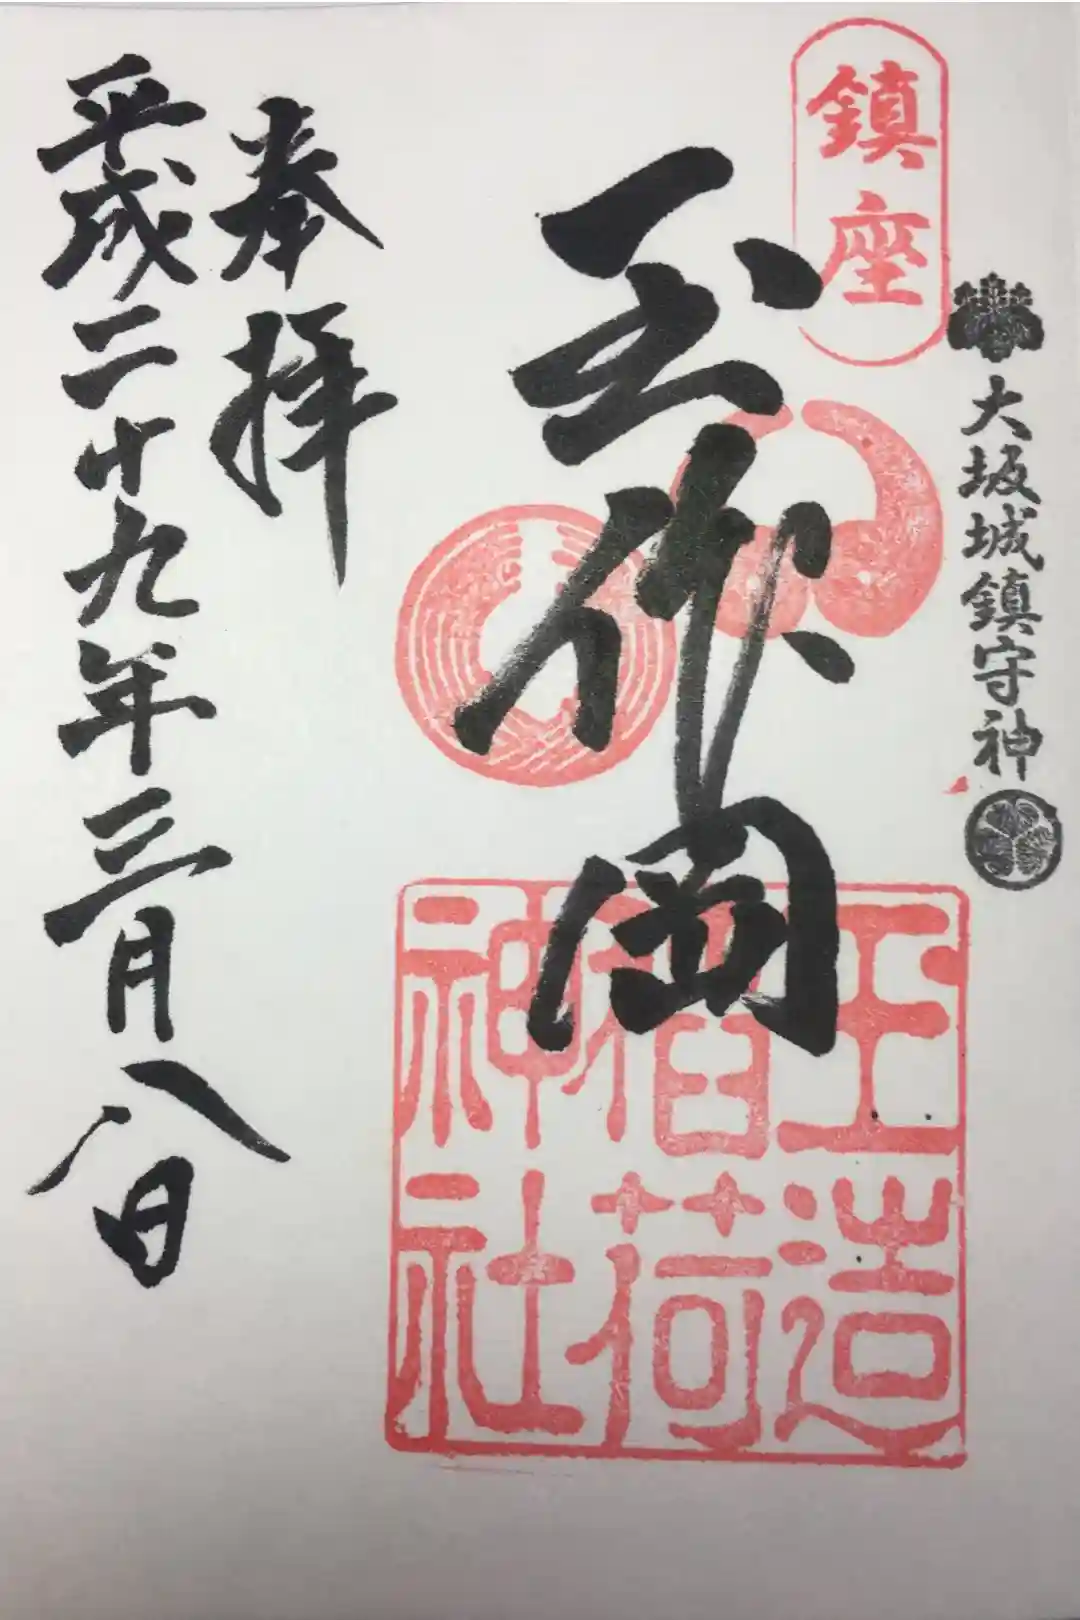 鎮座
大坂城鎮守神
玉作岡
玉造
稲荷
神社
奉拝
平成二十九年三月八日